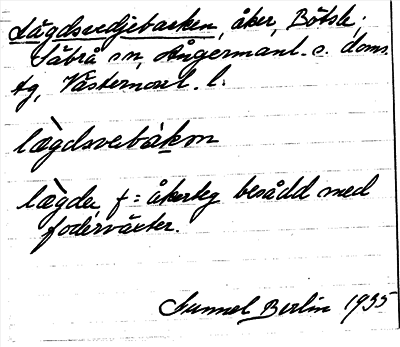 Lägdsvedjebacken, åker, Bölsh,
Säbrå sn, Ångermanl. s. doms.
tg, Västernorrl. l.
lægdsvebàkɷn
læ̀gda, f = åkerteg besådd med
foderväxter.
Sunnel Berlin 1935